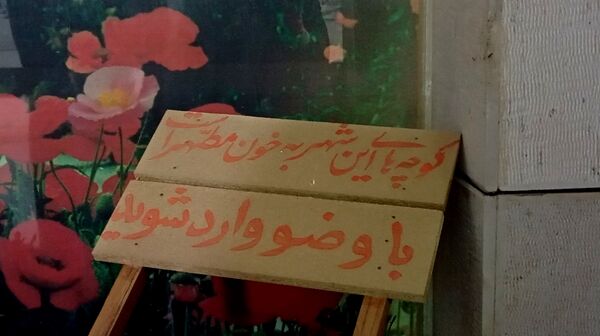 کوچه های این شهر به خون مطهر است
با وضو وارد شوید